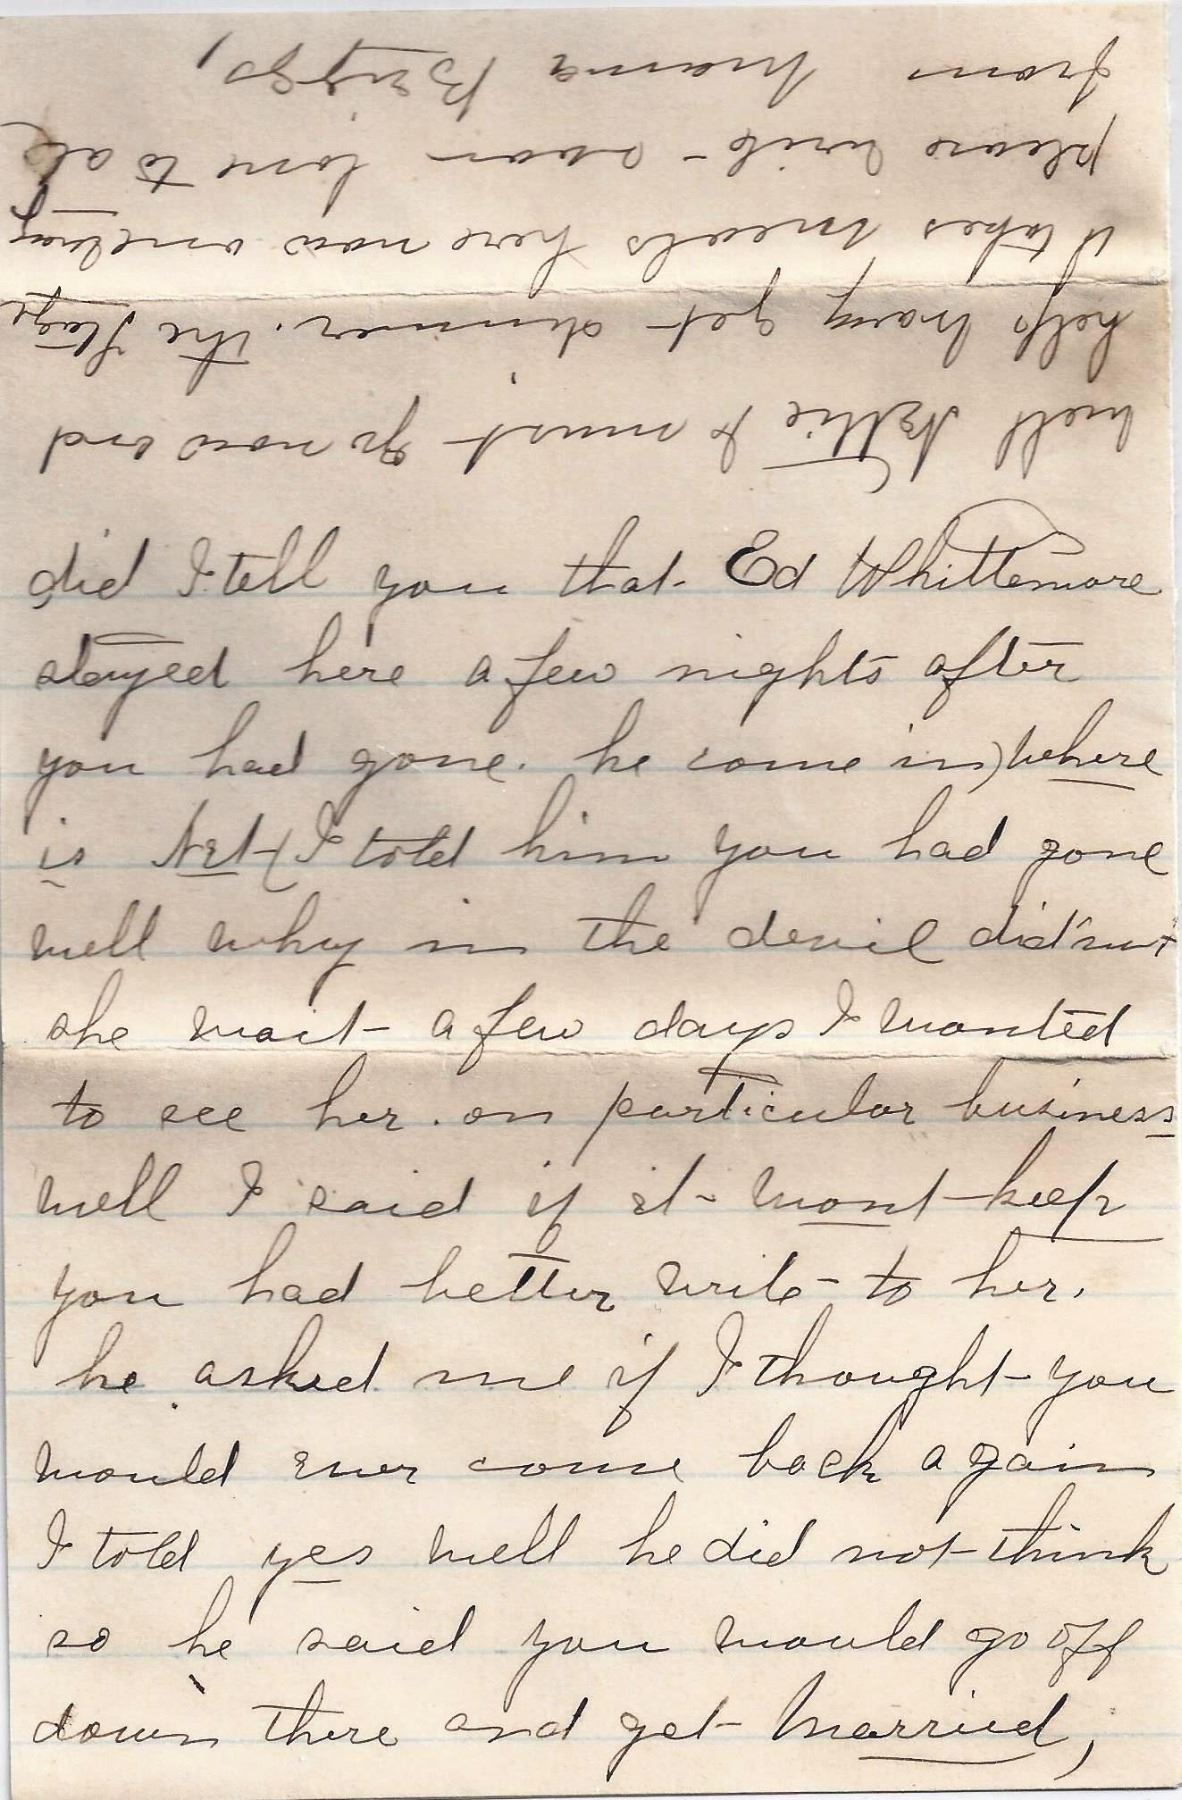 did I tell you that Ed Whittemore
stayed here a few nights after
you had gone. he come in) where
is Net ( I told him you had gone
well why in the devil did'nt
she wait a few days I wanted
to see her. on particular business
well I said if it wont keep
you had better write to her.
he asked me if I thought you
would ever come back again
I told yes well he did not think
so he said you would go off
down there and get married,
well Nettie I must go now and
help Mary get dinner. the Stage
takes meals here now
please write soon love to all
from Mama Briggs,